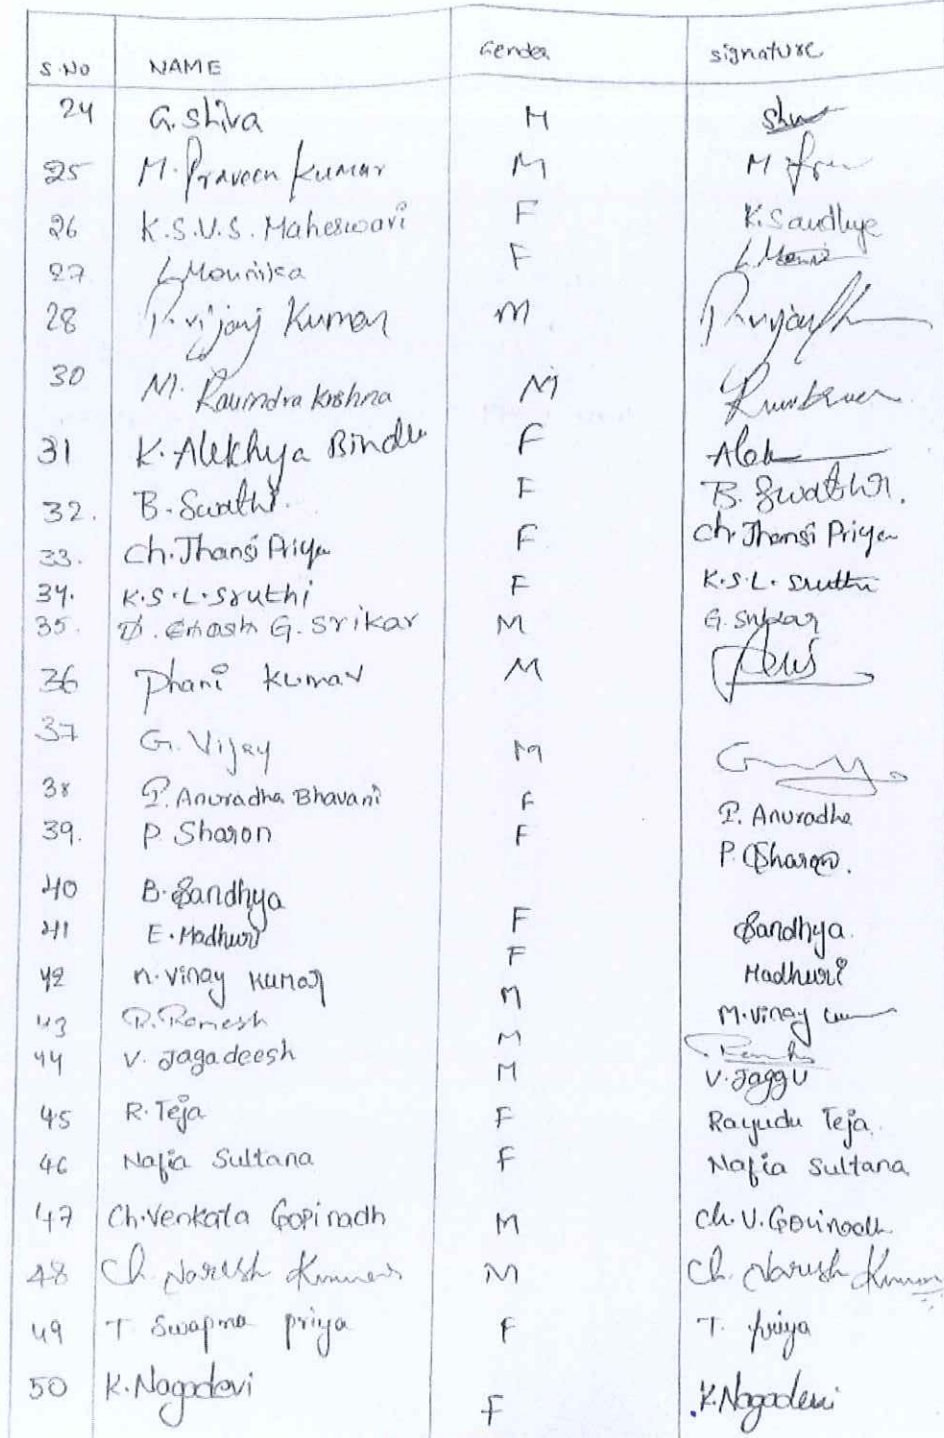 S.No NAME Gender signature
24 G. Shiva M
25 M. Praveen Kumar M M
26 K.S.V.S. Maheswari F K. Sandhye
27 L Mounika F L Mouni
28 P. Vijay Kumar M
30 M. Ravindra Krishna M
31 K. Alekhya Bindu F Alek
32. B. Swathi. F B. Swathi.
33. Ch. Jhansi Priya F Ch. Jhansi Priya
34. K.S.L. Sruthi F K.S.L. Sruthi
35. G. Srikar M G. Srikar
36 Phani Kumar M
37 G. Vijay M
38 P. Anuradha Bhavani F P. Anuradha
39. P Sharon F P. Sharon.
40 B. Sandhya F Sandhya.
41 E. Madhuri F Madhuri
42 M. Vinay Kumar M M. Vinay
43 R. Ramesh M
44 V. Jagadeesh M V. Jaggu
45 R. Teja F Rayudu Teja.
46 Nafia Sultana F Nafia Sultana
47 Ch. Venkata Gopinadh M Ch. V. Gopinadh
48 Ch. Naresh Kumar M Ch. Naresh Kumar
49 T Swapna Priya F T. Priya
50 K. Nagadevi F K. Nagadevi